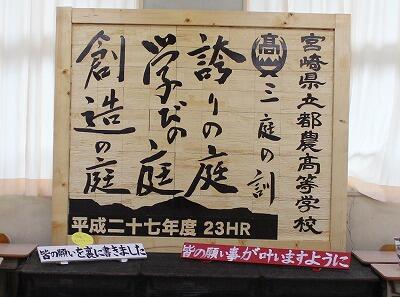 宮崎県立都農高等学校
高
三庭の訓
誇りの庭
学びの庭
創造の庭
平成二十七年度 23HR
皆の願いを裏に書きました
皆の願い事が叶いますように